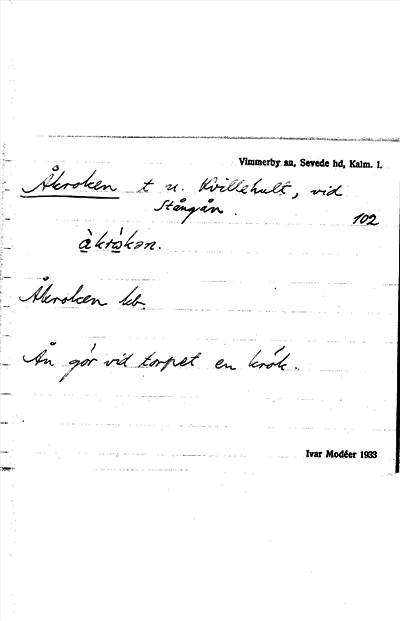 Vimmerby sn, Sevede hd, Kalm. l.
Åkroken t u. Kvillehult, vid
Stångån.
102
åkrokən.
Åkroken kb.
Ån gör vid torpet en krok.
Ivar Modéer 1933